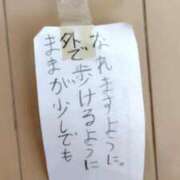 ままが少しでも
外で歩けるように
なれますように。